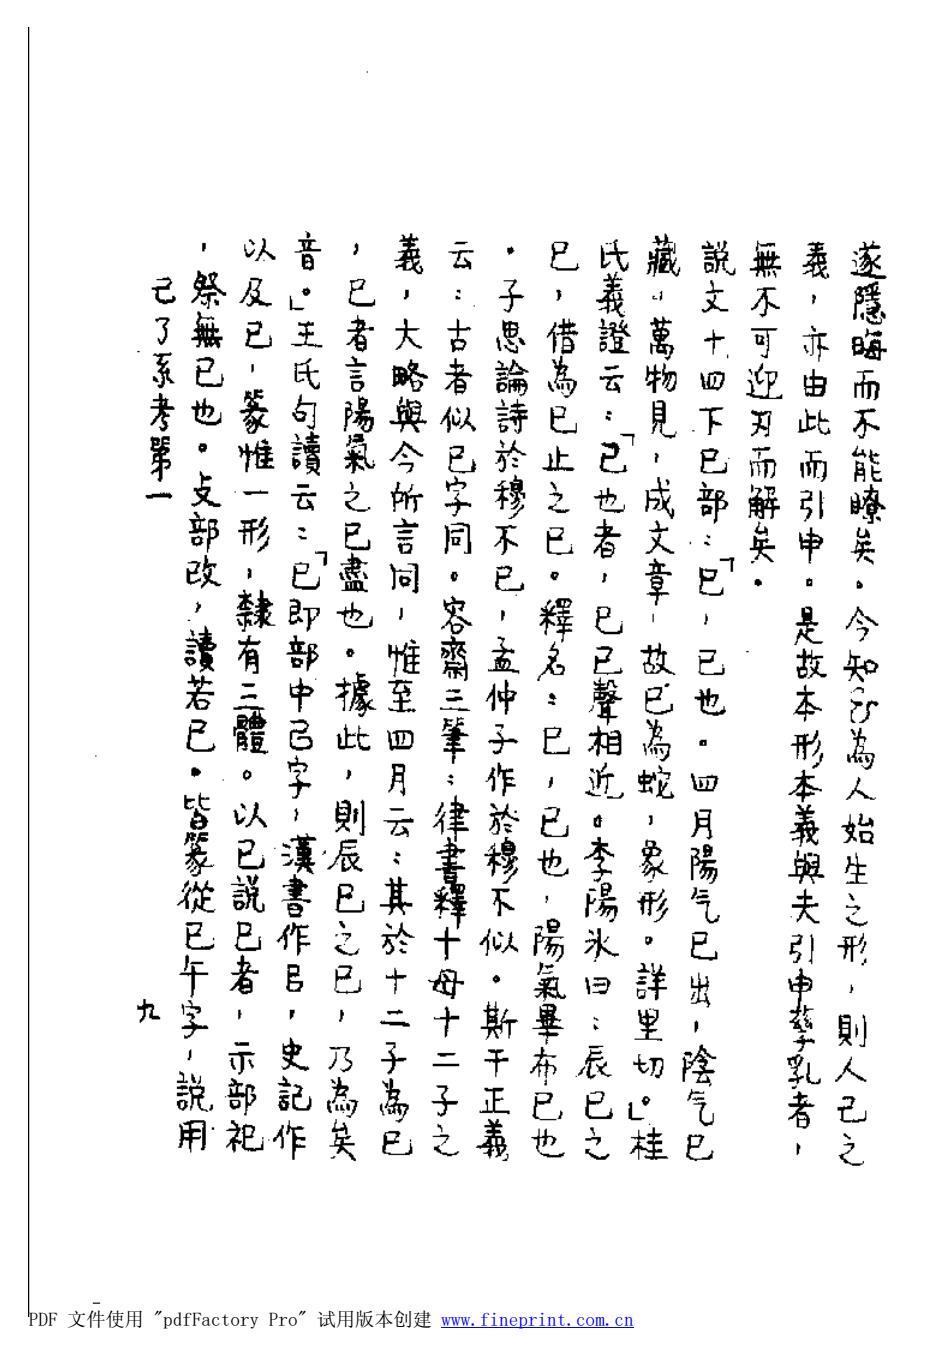 遂隱晦而不能瞭矣。今知ひ為人始生之形，則人己之
義，亦由此而引申。是故本形本義與夫引申孳乳者，
無不可迎刃而解矣。
說文十四下巳部：「巳，已也。四月陽气巳出，陰气巳
藏，萬物見，成文章，故巳為蛇，象形。詳里切。」桂
氏義證云：「己也者，巳已聲相近。李陽冰曰：辰巳之
巳，借為已止之已。釋名：巳，已也，陽氣畢布已也
。子思論詩於穆不已，孟仲子作於穆不似。斯干正義
云：古者似巳字同。容齋三筆：律書釋十母十二子之
義，大略與今所言同，惟至四月云：其於十二子為巳
，巳者言陽氣之已盡也。據此，則辰巳之巳，乃為矣
音。」王氏句讀云：「巳即部中㠯字，漢書作㠯，史記作
以及已，篆惟一形，隸有三體。以已說巳者，示部祀
，祭無已也。攴部改，讀若巳。皆篆從巳午字，說用
己了系考第一
九
PDF 文件使用 "pdfFactory Pro" 试用版本创建 www.fineprint.com.cn